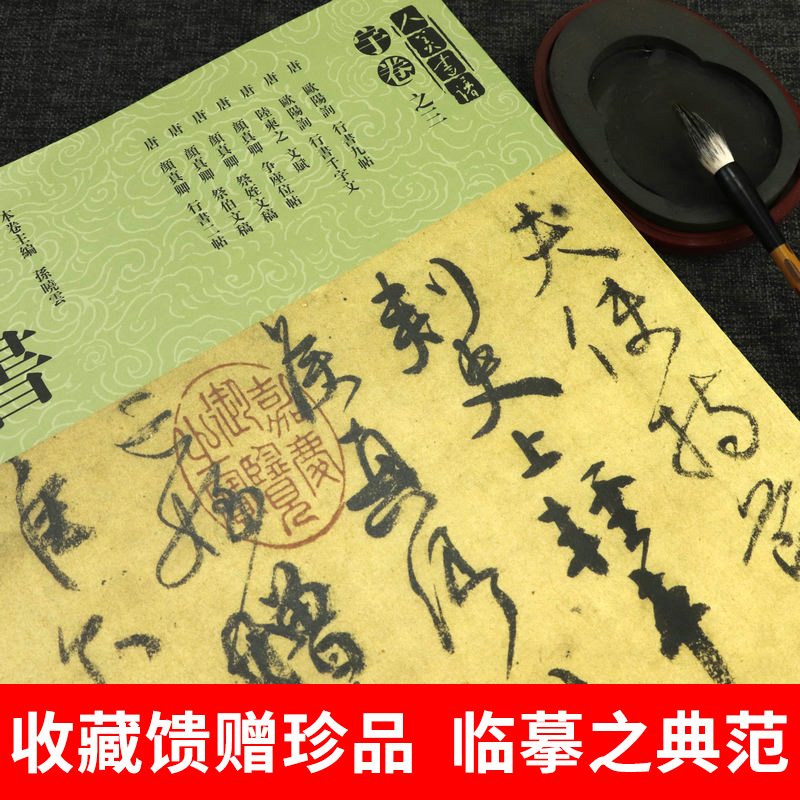 人美書譜
宇卷
之三
唐 歐陽詢 行書九帖
唐 歐陽詢 行書千字文
唐 陸柬之 文賦
唐 顏真卿 争座位帖
唐 顏真卿 祭姪文稿
唐 顏真卿 祭伯文稿
唐 顏真卿 行書二帖
本卷主編 孫曉雲
書
夫使持節
刺史上輕車
嘉慶
御覽
之寶
收藏馈赠珍品 临摹之典范